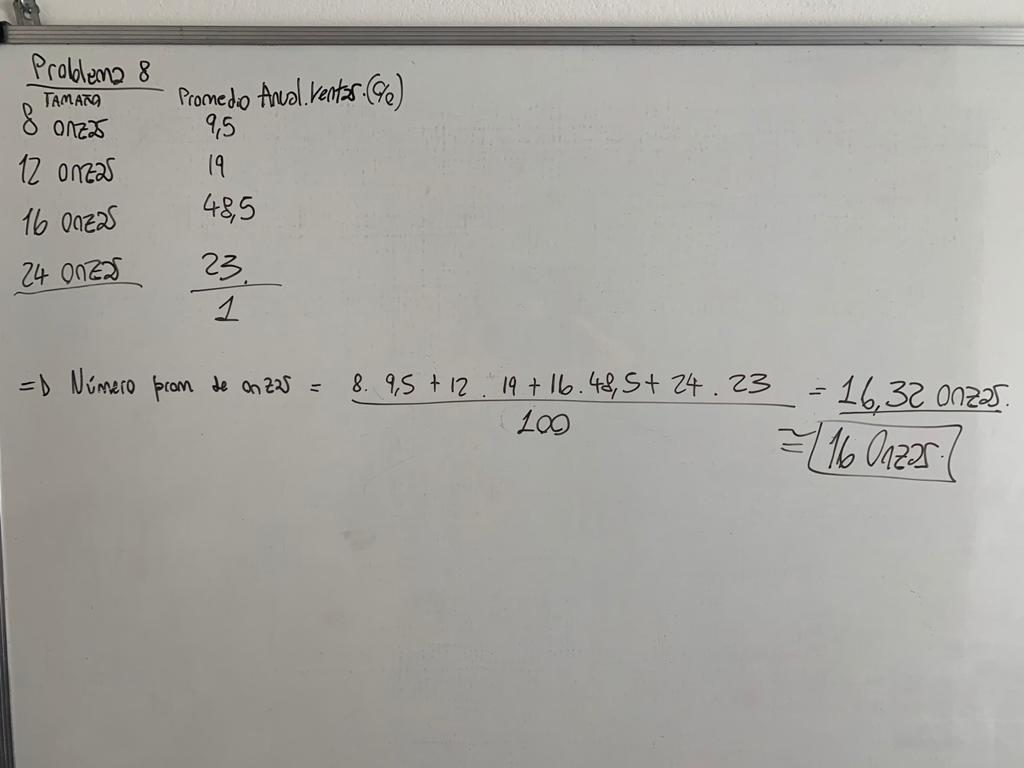 Problema 8
TAMAÑO Promedio Anual.ventas.(%)
8 onzas 9,5
12 onzas 19
16 onzas 48,5
24 onzas 23.
1
=D Número prom de onzas = 8. 9,5 + 12 . 19 + 16 . 48,5 + 24 . 23 = 16,32 onzas.
100
≅ 16 Onzas.